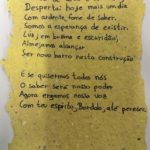 Desperta: hoje mais um dia
Com ardente fome de saber.
Somos a esperança de existir.
Luz, em bruma e escuridão,
Almejamos alcançar
Ser novo barro nesta construção

E se quisermos todos nós
O saber será nosso poder
Agora erguemos nossa voz
Com teu espírito, Bordalo, até perecer.